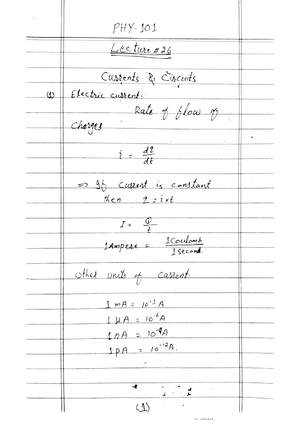 PHY-101
Lecture # 26
Currents & Circuits
(1) Electric current:
Rate of flow of
Charges
i = dq/dt
=> If current is constant
then q = i×t
I = Q/t
1 Ampere = 1 Coulomb/1 second
Other units of current
1 mA = 10⁻³ A
1 μA = 10⁻⁶ A
1 nA = 10⁻⁹ A
1 pA = 10⁻¹² A.
(1)